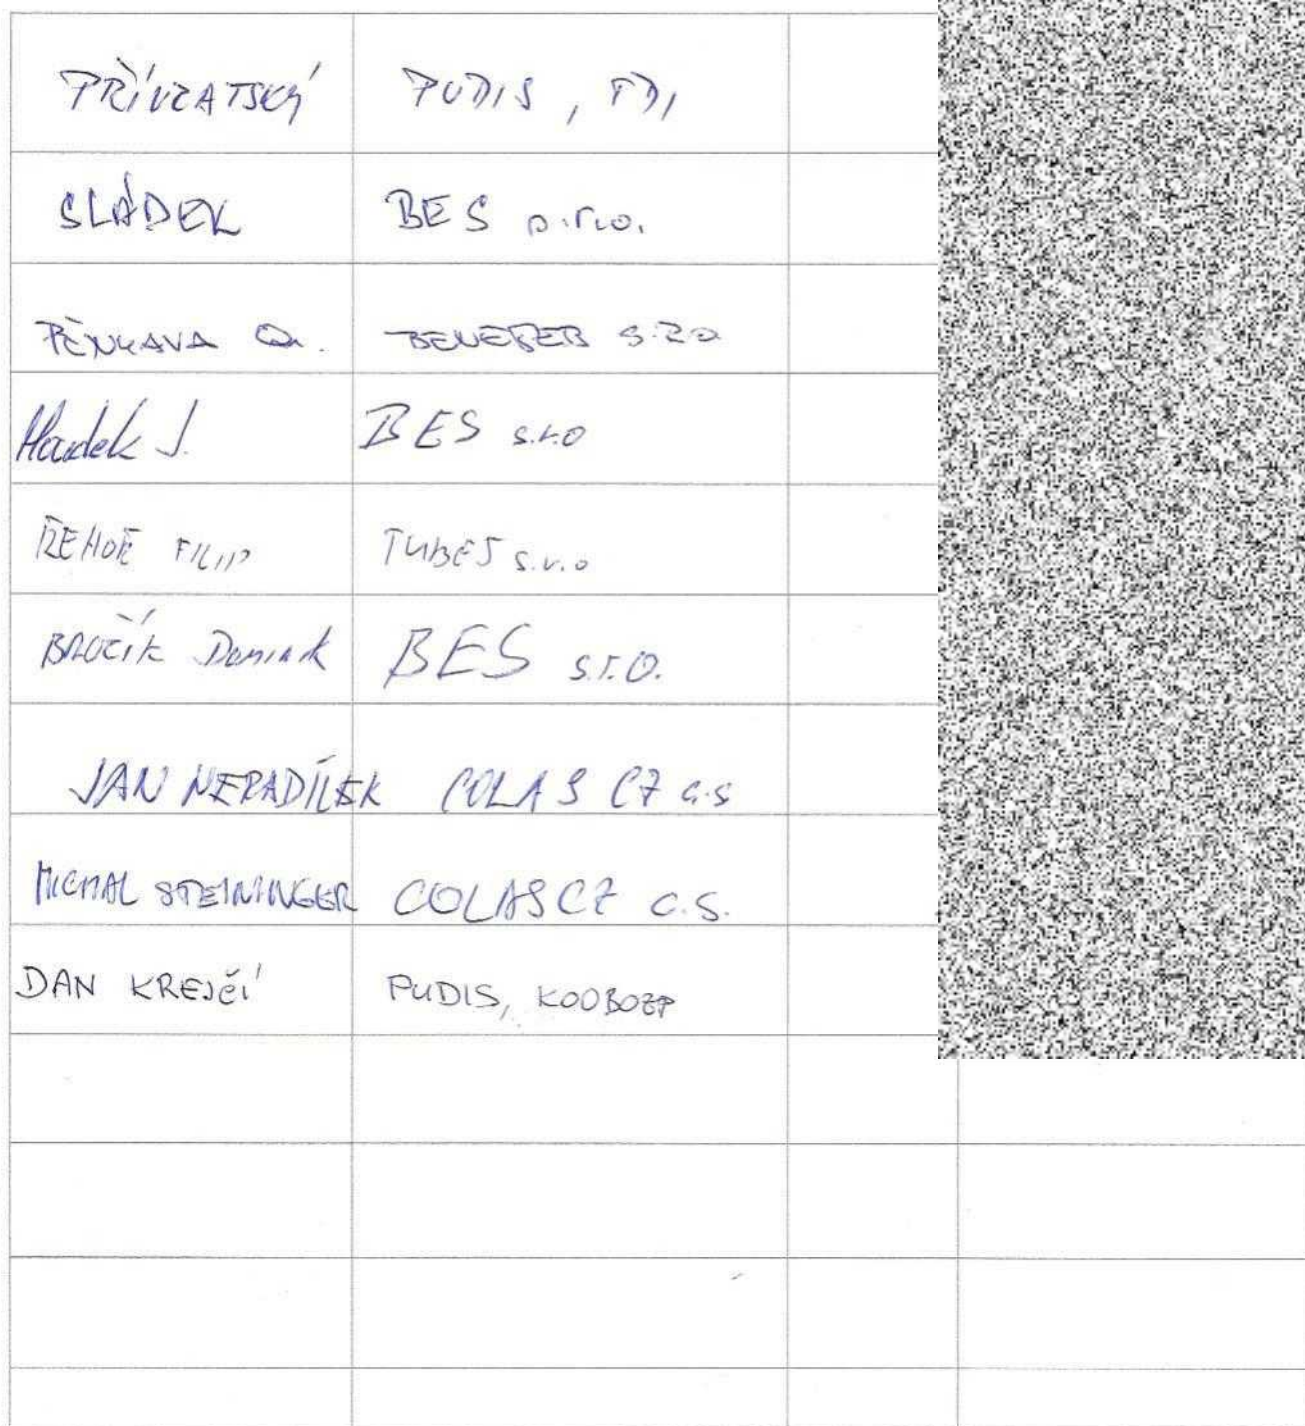 PŘÍVRATSKÝ PUDIS, TDI
SLÁDEK BES s.r.o.
PĚNKAVA s.r.o.
J. BES s.r.o
ŘEHOŘ FILIP TUBES s.r.o
Dominik BES s.r.o.
JAN NEPADÍLEK COLAS CZ a.s
MICHAL STEININGER COLAS CZ a.s.
DAN KREJČÍ PUDIS, KOOBOZP